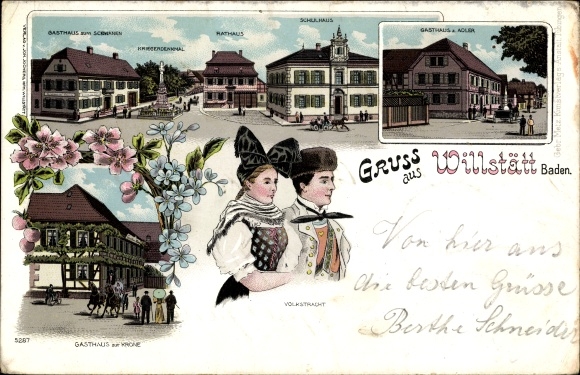 GASTHAUS zum SCHWANEN
KRIEGERDENKMAL
RATHAUS
SCHULHAUS
GASTHAUS z. ADLER
GRUSS
aus
Willstätt Baden.
VOLKSTRACHT
GASTHAUS zur KRONE
5287
Von hier aus
die besten Grüsse
Berthe Schneider